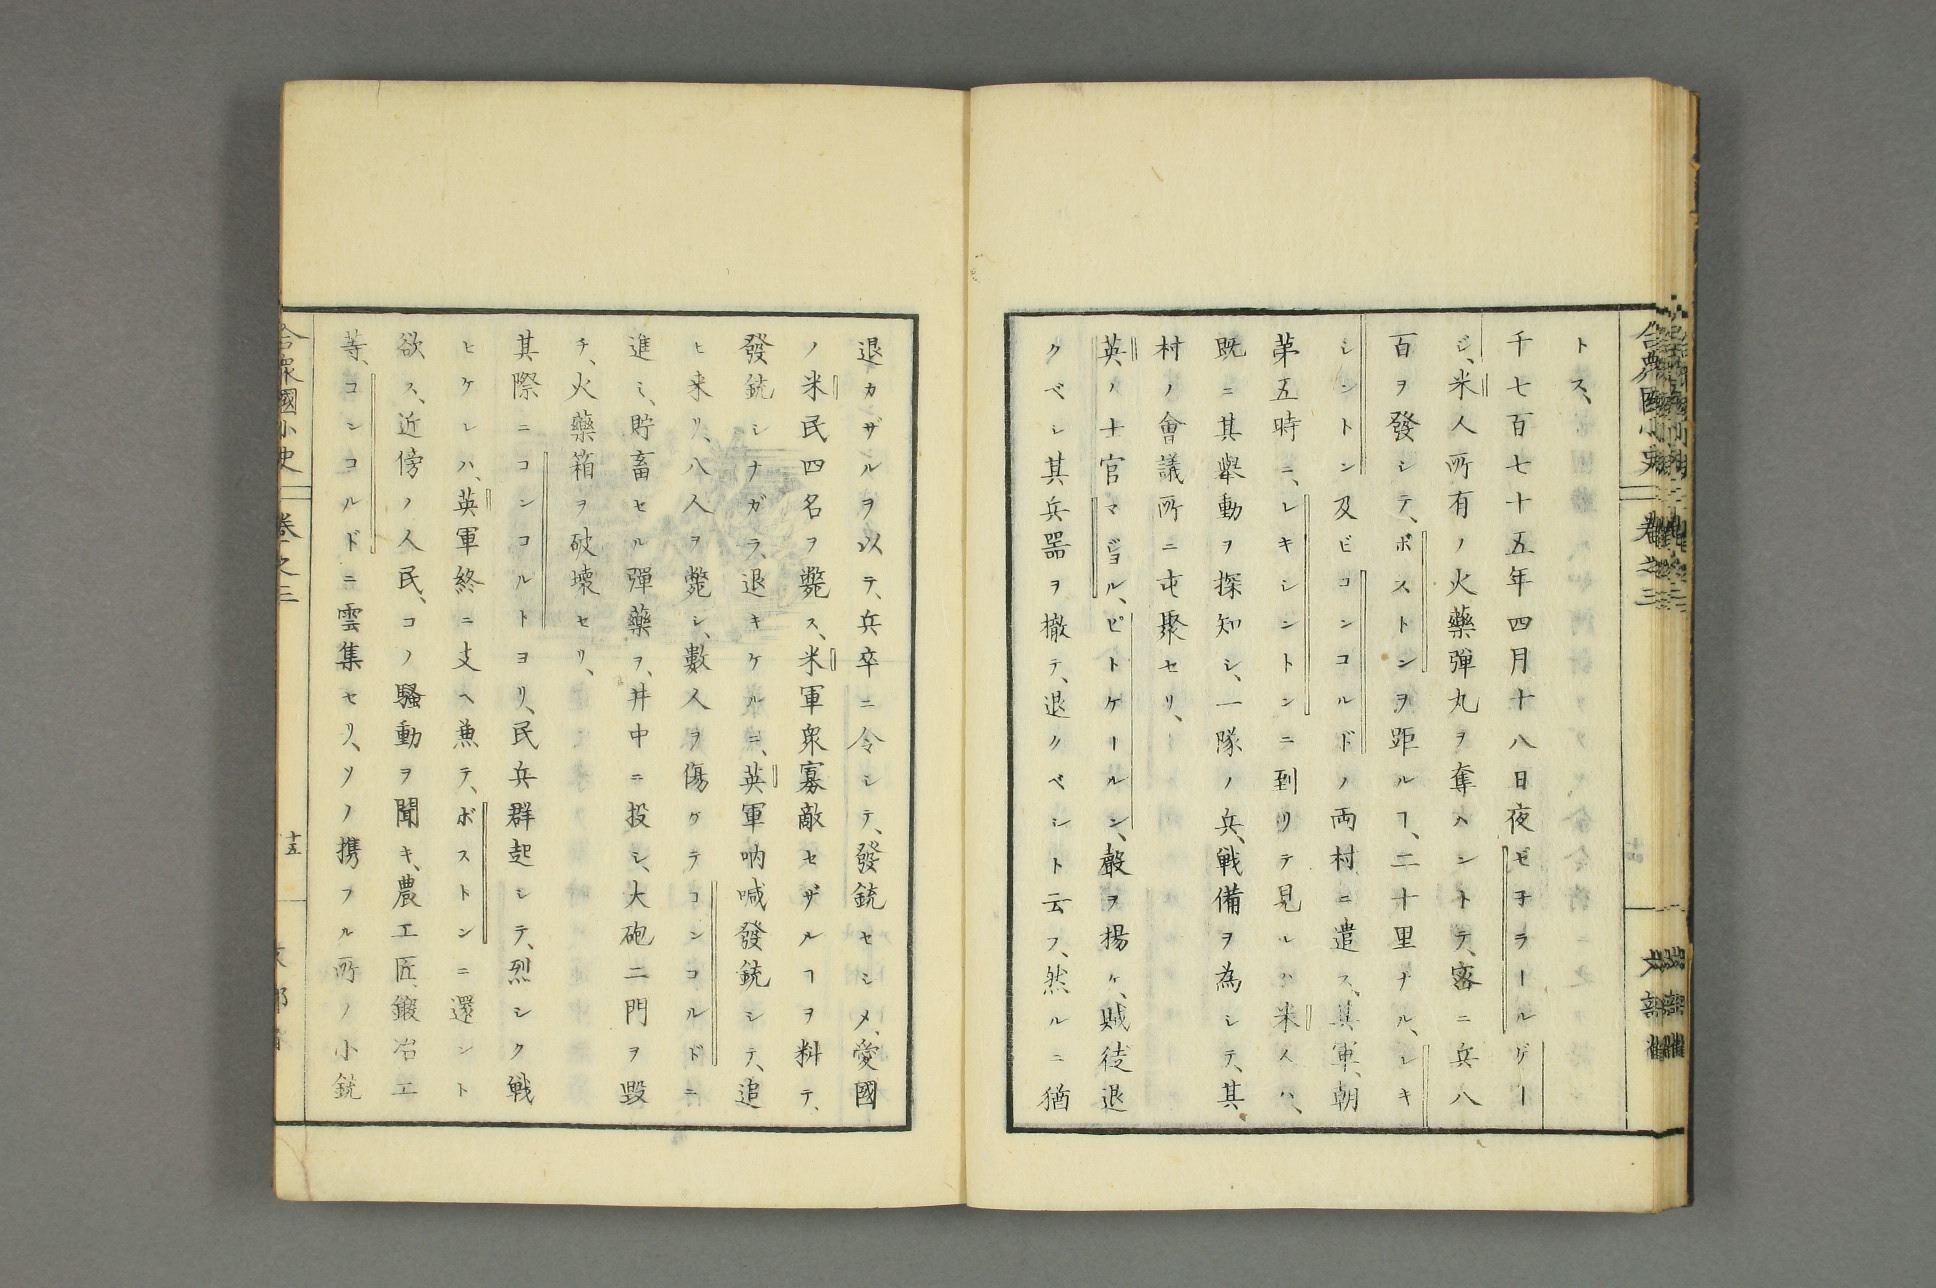 合衆國小史 巻之三 文部省
トス、
千七百七十五年四月十八日夜ゼ子ラールゲー
ジ、米人所有ノ火藥彈丸ヲ奪ハントテ、密ニ兵八
百ヲ發シテ、ボストンヲ距ルヿ、二十里ナル、レキ
シントン及ビコンコルドノ両村ニ遣ス、其軍、朝
第五時ニ、レキシントンニ到リテ見ルニ米人ハ、
既ニ其擧動ヲ探知シ、一隊ノ兵、戦備ヲ為シテ、其
村ノ會議所ニ屯聚セリ、
英ノ士官マジヨル、ピトケールン、聲ヲ揚ケ、賊徒退
クベシ其兵器ヲ撤テ、退クベシト云フ、然ルニ猶
退カザルヲ以テ、兵卒ニ令シテ、發銃セシメ、愛國
ノ米民四名ヲ斃ス、米軍衆寡敵セザルヿヲ料テ、
發銃シナガラ、退キケルニ、英軍吶喊發銃シテ、追
ヒ来リ、八人ヲ斃シ、數人ヲ傷ケテコンコルドニ
進ミ、貯畜セル彈藥ヲ、井中ニ投シ、大砲二門ヲ毀
チ、火藥箱ヲ破壊セリ、
其際ニコンコルトヨリ、民兵群起シテ、烈シク戦
ヒケレハ、英軍終ニ支ヘ兼テ、ボストンニ還ント
欲ス、近傍ノ人民、コノ騒動ヲ聞キ、農工匠、鍛冶工
等、コンコルドニ雲集セリ、ソノ携フル所ノ小銃
合衆國小史 巻之三 十五